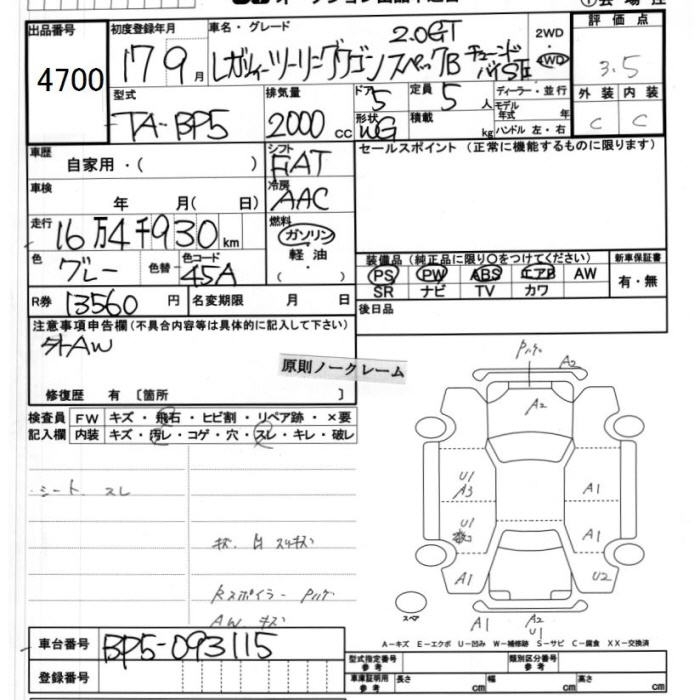 出品番号
4700
初度登録年月
17 9月
車名・グレード
2.0GT
レガシィツーリングワゴン スペックB チューンド バイSTI
2WD
4WD
評価点
3.5
外装 内装
C C
型式
TA-BP5
排気量
2000 cc
ドア
5
形状
WG
定員
5 人
積載
kg
ディーラー・並行
モデル
年式 年
ハンドル 左・右
車歴
自家用・( )
シフト
FAT
車検
年 月( 日)
冷房
AAC
走行
16万4千930 km
燃料
ガソリン
軽油
( ・ )
色
グレー
色替
色コード
45A
R券
13560 円
名変期限 月 日
セールスポイント (正常に機能するものに限ります)
装備品 (純正品に限り○をつけてください)
PS PW ABS エアB AW
SR ナビ TV カワ
新車保証書
有・無
後日品
注意事項申告欄 (不具合内容等は具体的に記入して下さい)
外AW
原則ノークレーム
修復歴 有 〔箇所 〕
検査員
記入欄
FW キズ・飛石・ヒビ割・リペア跡・×要
内装 キズ・汚レ・コゲ・穴・スレ・キレ・破レ
シート スレ
Rスポイラー
AW キズ
A2
A2
U1
A3
A1
U1
A1
A1
U2
スペア
A1
A2
U1
A-キズ E-エクボ U-凹み W-補修跡 S-サビ C-腐食 XX-交換済
車台番号
BP5-093115
登録番号
型式指定番号
参考
類別区分番号
参考
車庫証明用
参考
長さ cm
幅 cm
高さ cm